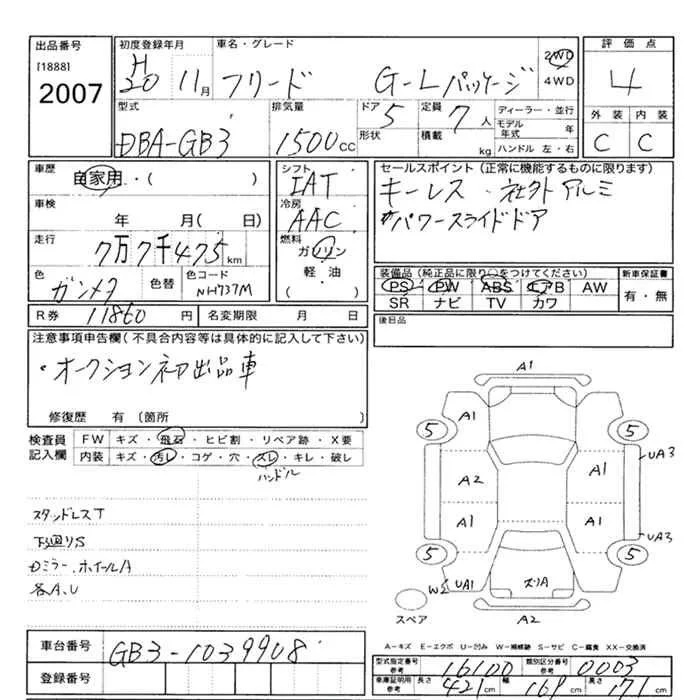 出品番号 初度登録年月 車名・グレード 評価点
[1888] 2007
H20 11月 フリード G-Lパッケージ 2WD 4WD
4
型式 排気量 ドア 5 定員 7 人 ディーラー・並行
モデル年式 年
外装 内装
DBA-GB3 1500CC 形状 積載 kg ハンドル 左・右
C C
車歴 自家用・( )
シフト IAT
セールスポイント(正常に機能するものに限ります)
キーレス 社外アルミ
パワースライドドア
車検 年 月( 日)
冷房 AAC
走行 7万7千475km
燃料 ガソリン
軽・油
・( )
色 ガンメタ 色替 色コード NH737M
装備品(純正品に限り○をつけてください) 新車保証書
PS PW ABS エアB AW 有・無
SR ナビ TV カワ
R券 11860 円 名変期限 月 日
後日品
注意事項申告欄(不具合内容等は具体的に記入して下さい)
・オークション初出品車
修復歴 有(箇所
検査員記入欄 FW キズ・飛石・ヒビ割・リペア跡・X要
内装 キズ・汚レ・コゲ・穴・スレ・キレ・破レ
ハンドル
スタッドレスT
下廻りS
Dミラー、ホイールA
各A、U
A1
A1
5 5
UA3
A2 A1
A1 A1
UA3
5 5
W2 UA1 スリA
スペア
A2
車台番号 GB3-1039908
登録番号
A-キズ E-エクボ U-凹み W-補修跡 S-サビ C-腐食 XX-交換済
型式指定番号 参考 16100 類別区分番号 参考 0003
車庫証明用 参考 長さ 421cm 幅 169cm 高さ 171cm